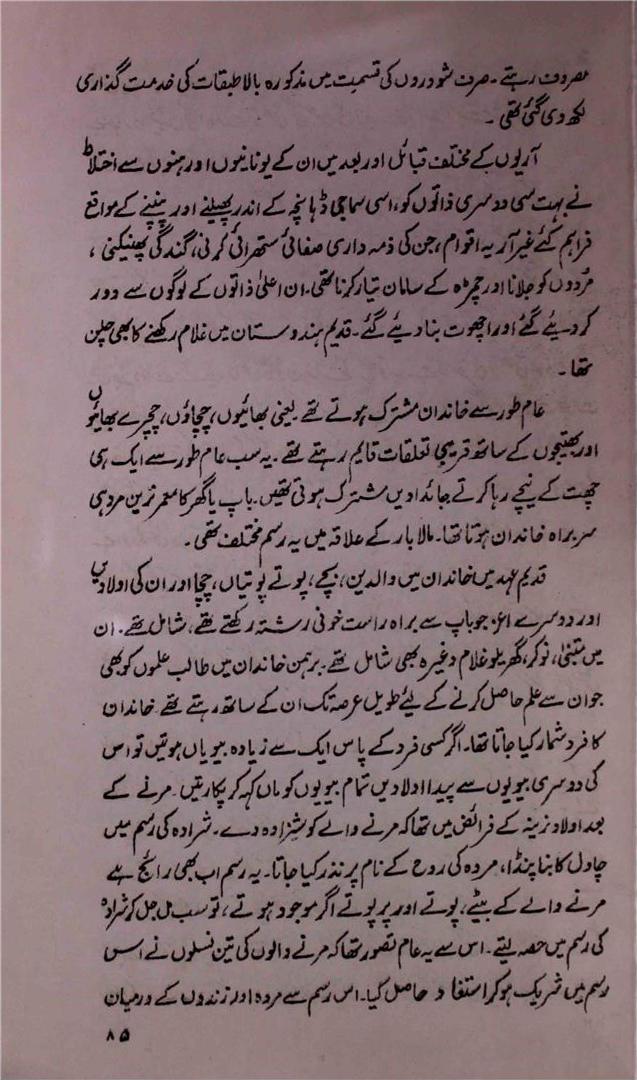 مصروف رہتے ۔ صرف شودروں کی قسمت میں مذکورہ بالا طبقات کی خدمت گذاری
لکھ دی گئی تھی ۔
آریوں کے مختلف قبائل اور بعد میں ان کے یونانیوں اور ہنوں سے اختلاط
نے بہت سی دوسری ذاتوں کو، اسی سماجی ڈھانچہ کے اندر پھیلنے اور پنپنے کے مواقع
فراہم کئے غیر آریہ اقوام، جن کی ذمہ داری صفائی ستھرائی کرنی، گندگی پھینکنی ،
مُردوں کو جلانا اور چمڑہ کے سامان تیار کرنا تھی۔ ان اعلیٰ ذاتوں کے لوگوں سے دور
کر دیئے گئے اور اچھوت بنا دیئے گئے ۔ قدیم ہندوستان میں غلام رکھنے کا بھی چلن
تھا ۔
عام طور سے خاندان مشترک ہوتے تھے یعنی بھائیوں، چچاؤں، چچیرے بھائیوں
اور بھتیجوں کے ساتھ قریبی تعلقات قایم رہتے تھے ۔ یہ سب عام طور سے ایک ہی
چھت کے نیچے رہا کرتے جائدادیں مشترک ہوتی تھیں۔ باپ یا گھر کا معمر ترین مرد ہی
سربراہ خاندان ہوتا تھا۔ مالابار کے علاقہ میں یہ رسم مختلف تھی ۔
قدیم عہد میں خاندان میں والدین، بچے، پوتے پوتیاں، چچا اور ان کی اولادیں
اور دوسرے اعزہ جو باپ سے براہ راست خونی رشتہ رکھتے تھے، شامل تھے ۔ ان
میں متبنیٰ، نوکر، گھریلو غلام وغیرہ بھی شامل تھے ۔ برہمن خاندان میں طالب علموں کو بھی
جو ان سے علم حاصل کرنے کے لیئے طویل عرصہ تک ان کے ساتھ رہتے تھے خاندان
کا فرد شمار کیا جاتا تھا۔ اگر کسی فرد کے پاس ایک سے زیادہ بیویاں ہوتیں تو اس
کی دوسری بیویوں سے پیدا اولادیں تمام بیویوں کو ماں کہہ کر پکارتیں ۔ مرنے کے
بعد اولاد نرینہ کے فرائض میں تھا کہ مرنے والے کو شرادہ دے ۔ شرادہ کی رسم میں
چاول کا بنا پنڈا، مردہ کی روح کے نام پر نذر کیا جاتا۔ یہ رسم اب بھی رائج ہے
مرنے والے کے بیٹے، پوتے اور پر پوتے اگر موجود ہوتے، تو سب مل جل کر شرادہ
کی رسم میں حصہ لیتے ۔ اس سے یہ عام تصور تھا کہ مرنے والوں کی تین نسلوں نے اس
رسم میں شریک ہو کر استفادہ حاصل کیا۔ اس رسم سے مردہ اور زندوں کے درمیان
۸۵